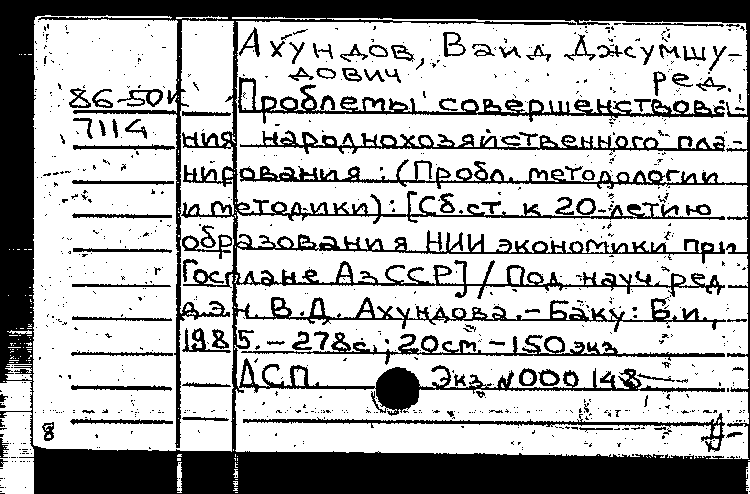 Ахундов, Ваид Джумшу-
дович ред.
86-50к Проблемы совершенствова-
7114 ния народнохозяйственного пла-
нирования : (Пробл. методологии
и методики) : [Сб.ст. к 20-летию
образования НИИ экономики при
Госплане АзССР] / Под науч. ред
д.э.н. В.Д. Ахундова. - Баку: Б.и.,
1985. - 278с.; 20см. - 150экз
ДСП. Экз. №000148.
8